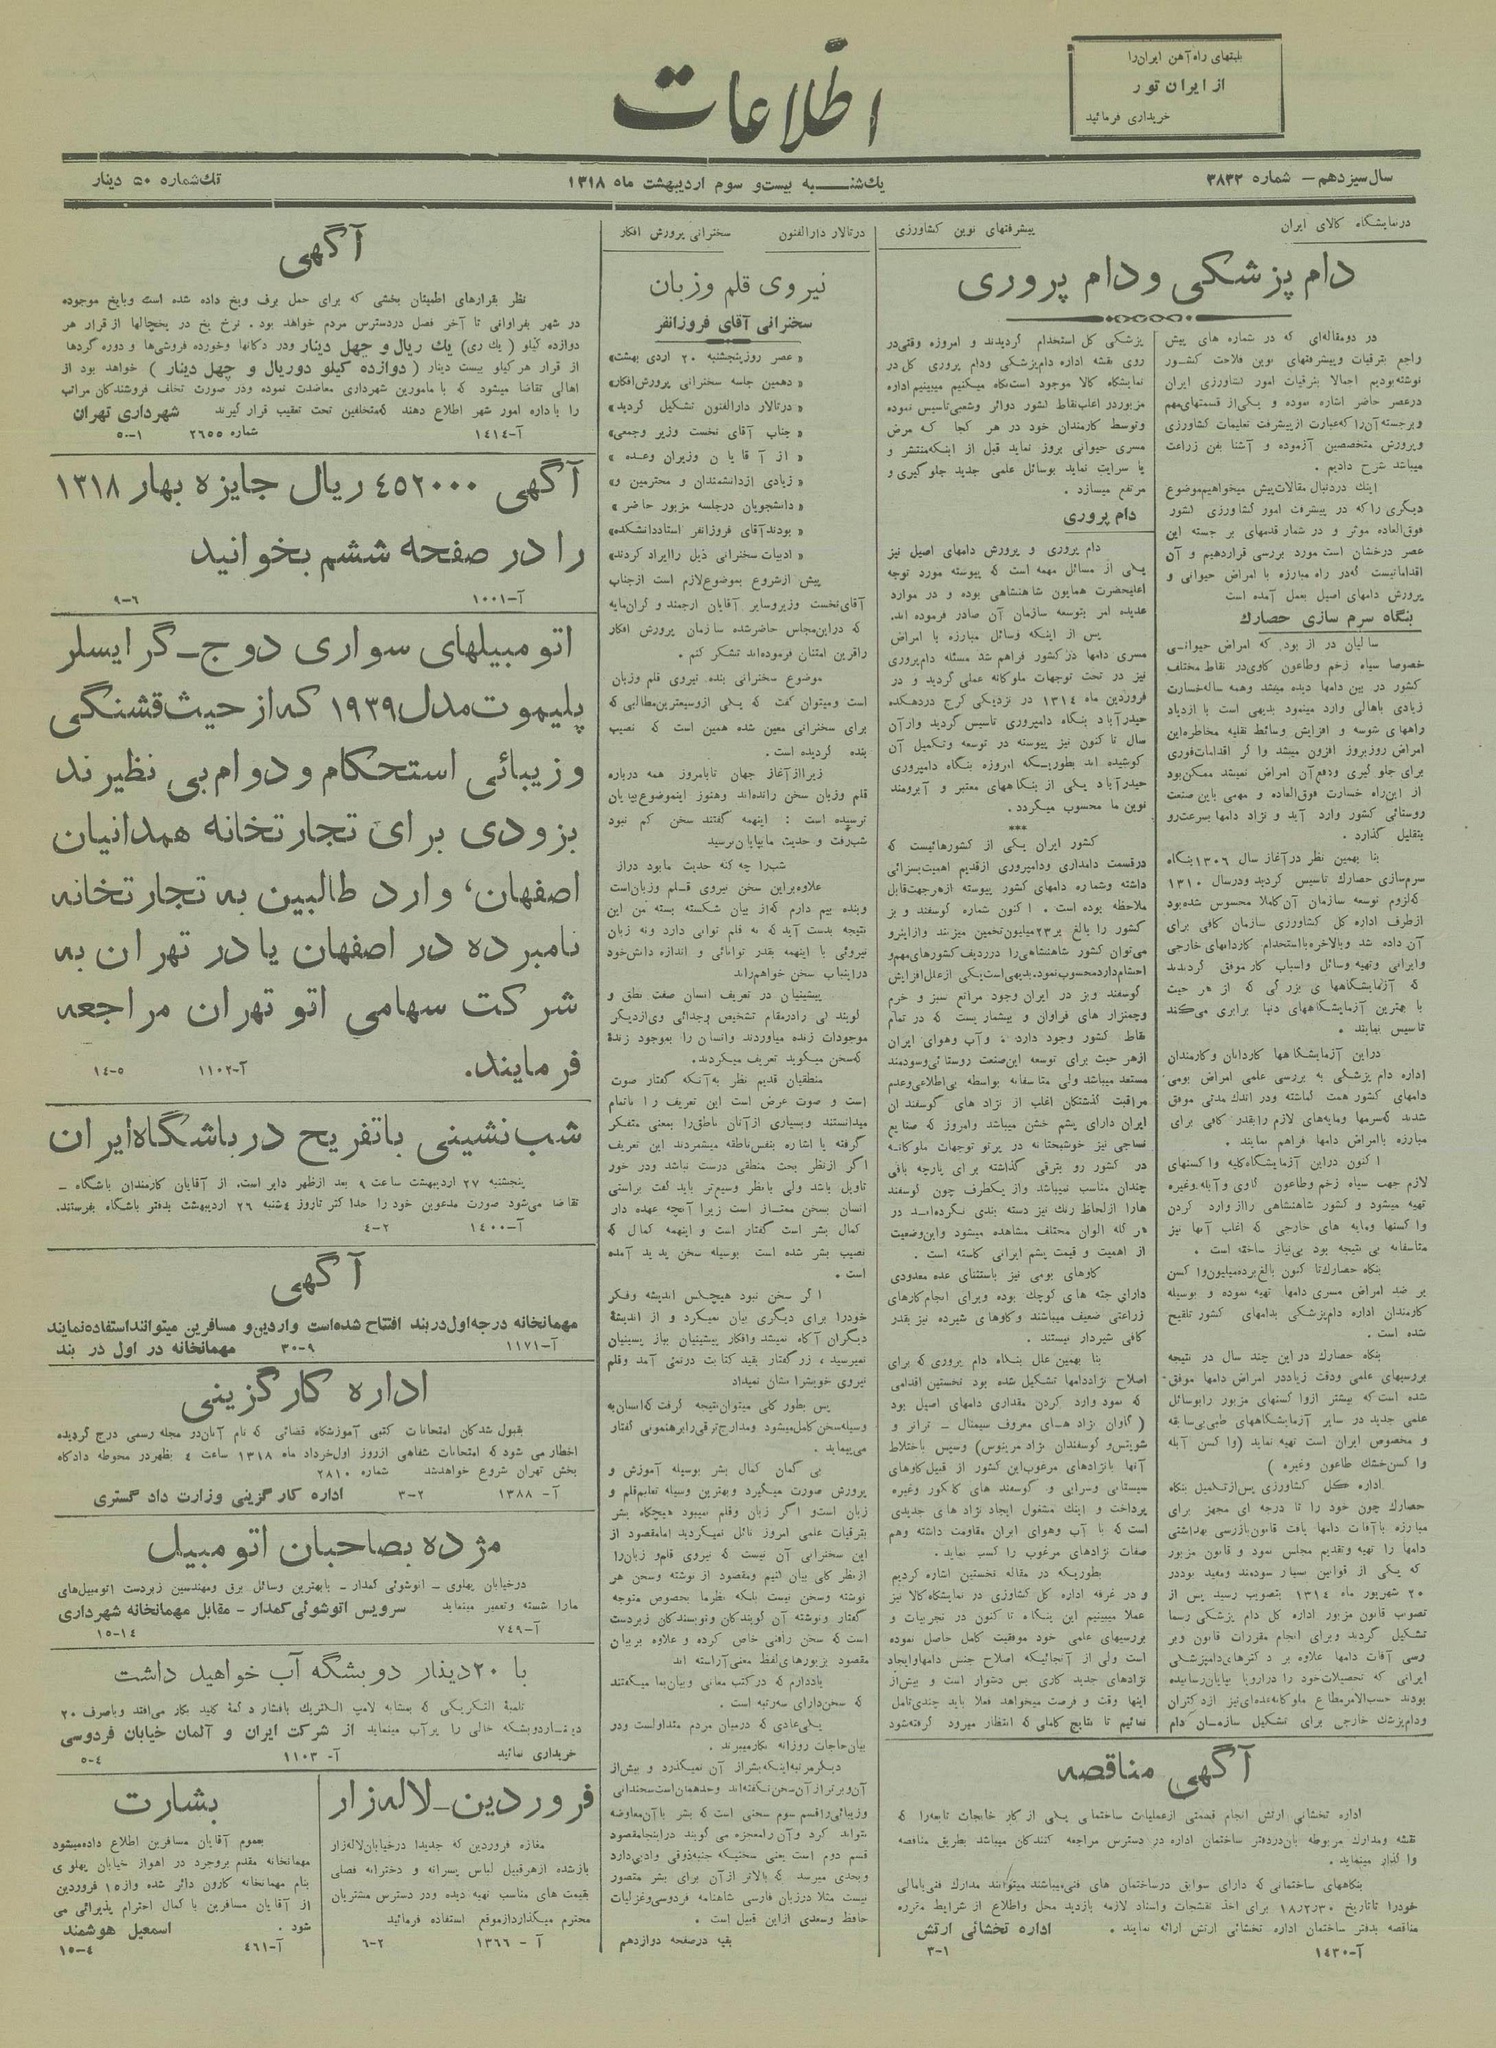 بلیتهای راه‌آهن ایران‌را
از ایران تور
خریداری فرمائید
اطلاعات
سال سیزدهم – شماره ۳۸۳۲
یک‌شنبه بیست و سوم اردیبهشت ماه ۱۳۱۸
تک شماره ۵۰ دینار
در نمایشگاه کالای ایران
پیشرفتهای نوین کشاورزی
دام پزشکی و دام پروری
در دومقاله‌ای که در شماره های پیش
راجع بترقیات وپیشرفتهای نوین فلاحت کشور
نوشته‌بودیم اجمالا بترقیات امور کشاورزی ایران
درعصر حاضر اشاره نموده و یکی‌از قسمتهای‌مهم
وبرجسته آن‌را که‌عبارت ازپیشرفت تعلیمات کشاورزی
وپرورش متخصصین آزموده و آشنا بفن زراعت
میباشد شرح دادیم .
اینک دردنبال مقالات‌پیش میخواهیم‌موضوع
دیگری راکه در پیشرفت امور کشاورزی کشور
فوق‌العاده موثر و در شمار قدمهای بر جسته این
عصر درخشان است مورد بررسی قراردهیم و آن
اقداماتیست که‌در راه مبارزه با امراض حیوانی و
پرورش دامهای اصیل بعمل آمده است
بنگاه سرم سازی حصارك
سا لیان در از بود که امراض حیوانی
خصوصا سیاه زخم وطاعون گاوی‌در نقاط مختلف
کشور در بین دامها دیده میشد وهمه ساله‌خسارت
زیادی باهالی وارد مینمود بدیهی است با ازدیاد
راههای شوسه و افزایش وسائط نقلیه مخاطره‌این
امراض روزبروز افزون میشد واگر اقدامات‌فوری
برای جلو گیری ودفع‌آن امراض نمیشد ممکن‌بود
از این‌راه خسارت فوق‌العاده و مهمی باین صنعت
روستائی کشور وارد آید و نژاد دامها بسرعت‌رو
بتقلیل گذارد .
بنا بهمین نظر درآغاز سال ۱۳۰۶ بنگاه
سرم‌سازی حصارك تاسیس گردید ودرسال ۱۳۱۰
که‌لزوم توسعه سازمان آن‌کاملا محسوس شده‌بود
ازطرف اداره کل کشاورزی سازمان کافی برای
آن داده شد وبالاخره بااستخدام کاردانهای خارجی
وایرانی وتهیه وسائل واسباب کار موفق گردیدند
که آزمایشگاههای بزرگی که از هر حیث
با بهترین آزمایشگاههای دنیا برابری می‌کند
تاسیس نمایند .
دراین آزمایشگاهها کاردانان وکارمندان
اداره دام پزشکی به بررسی علمی امراض بومی
دامهای کشور همت گماشته ودر اندك مدتی موفق
شدند که‌سرمها ومایه‌های لازم رابقدر کافی برای
مبارزه باامراض دامها فراهم نمایند .
اکنون دراین آزمایشگاه‌کلیه واکسنهای
لازم جهت سیاه زخم وطاعون گاوی و آبله وغیره
تهیه میشود و کشور شاهنشاهی رااز وارد کردن
واکسنها ومایه های خارجی که اغلب آنها نیز
متاسفانه بی نتیجه بود بی‌نیاز ساخته است .
بنگاه حصارك‌تا کنون بالغ‌برده‌میلیون‌واکسن
بر ضد امراض مسری دامها تهیه نموده و بوسیله
کارمندان اداره دام‌پزشکی بدامهای کشور تلقیح
شده است .
بنگاه حصارك در این چند سال در نتیجه
بررسیهای علمی ودقت زیاددر امراض دامها موفق
شده است که بیشتر ازوا کسنهای مزبور رابوسائل
علمی جدید در سایر آزمایشگاههای طبی‌بی‌سابقه
و مخصوص ایران است تهیه نماید (وا کسن آبله
وا کسن‌خشك طاعون وغیره )
اداره کل کشاورزی پس‌ازتکمیل بنگاه
حصارك چون خود را تا درجه ای مجهز برای
مبارزه باآفات دامها یافت قانون‌بازرسی بهداشتی
دامها را تهیه وتقدیم مجلس نمود و قانون مزبور
که یکی از قوانین بسیار سودمند ومفید بوددر
۲۰ شهریور ماه ۱۳۱۴ بتصویب رسید پس از
تصویب قانون مزبور اداره کل دام پزشکی رسما
تشکیل گردید وبرای انجام مقررات قانون وبر
رسی آفات دامها علاوه بر دکترهای‌دامپزشکی
ایرانی که تحصیلات‌خود را دراروپا بپایان‌رسانیده
بودند حسب‌الامرمطاع ملوکانه‌عده‌ای‌نیز ازدکتران
ودام‌پزشك خارجی برای تشکیل سازمان دام
پزشکی کل استخدام گردیدند و امروزه وقتی‌در
روی نقشه اداره دام‌پزشکی ودام پروری کل در
نمایشگاه کالا موجود است‌نگاه میکنیم میبینیم اداره
مزبوردر اغلب‌نقاط کشور دوائر وشعبی‌تاسیس نموده
وتوسط کارمندان خود در هر کجا که مرض
مسری حیوانی بروز نماید قبل از اینکه‌منتشر و
یا سرایت نماید بوسائل علمی جدید جلو گیری و
مرتفع میسازد .
دام پروری
دام پروری و پرورش دامهای اصیل نیز
یکی از مسائل مهمه است که پیوسته مورد توجه
اعلیحضرت همایون شاهنشاهی بوده و در موارد
عدیده امر بتوسعه سازمان آن صادر فرموده اند.
پس از اینکه وسائل مبارزه با امراض
مسری دامها در کشور فراهم شد مسئله دام‌پروری
نیز در تحت توجهات ملوکانه عملی گردید و در
فروردین ماه ۱۳۱۴ در نزدیکی کرج دردهکده
حیدرآباد بنگاه دامپروری تاسیس گردید وازآن
سال تا کنون نیز پیوسته در توسعه وتکمیل آن
کوشیده اند بطوریکه امروزه بنگاه دامپروری
حیدرآباد یکی از بنگاههای معتبر و آبرومند
نوین ما محسوب میگردد.
***
کشور ایران یکی از کشورهائیست که
درقسمت دامداری ودامپروری ازقدیم اهمیت‌بسزائی
داشته وشماره دامهای کشور پیوسته ازهرجهت‌قابل
ملاحظه بوده است . اکنون شماره گوسفند و بز
کشور را بالغ بر۲۳میلیون‌تخمین میزنند وازاینرو
می‌توان کشور شاهنشاهی را درردیف کشورهای‌مهم‌و
احشام‌دارمحسوب‌نمود. بدیهی‌است‌یکی ازعلل‌افزایش
گوسفند وبز در ایران وجود مراتع سبز و خرم
وچمنزار های فراوان و بیشمار یست که در تمام
نقاط کشور وجود دارد ، وآب وهوای ایران
ازهر حیث برای توسعه این‌صنعت روستائی‌وسودمند
مستعد میباشد ولی متاسفانه بواسطه بی‌اطلاعی‌وعدم
مراقبت گذشتگان اغلب از نژاد های گوسفندان
ایران دارای پشم خشن میباشد وامروز که صنایع
نساجی نیز خوشبختانه در پرتو توجهات ملوکانه
در کشور رو بترقی گذاشته برای پارچه بافی
چندان مناسب نمیباشد واز یکطرف چون گوسفند
هارا ازلحاظ رنك نیز دسته بندی نکرده‌اند در
هر گله الوان مختلف مشاهده میشود واین‌وضعیت
از اهمیت و قیمت پشم ایرانی کاسته است .
گاوهای بومی نیز باستثنای عده معدودی
دارای جثه های کوچك بوده وبرای انجام‌کارهای
زراعتی ضعیف میباشند وگاوهای شیرده نیز بقدر
کافی شیردار نیستند .
بنا بهمین علل بنگاه دام پروری که برای
اصلاح نژاددامها تشکیل شده بود نخستین اقدامی
که نمود وارد کردن مقداری دامهای اصیل بود
( گاوان نژاد های معروف سیمنتال – ترانر و
شویتس‌و گوسفندان نژاد مرینوس) وسپس باختلاط
آنها بانژادهای مرغوب‌این کشور از قبیل‌گاوهای
سیستانی وسرابی و گوسفند های کاکور وغیره
پرداخت و اینك مشغول ایجاد نژاد های جدیدی
است که با آب وهوای ایران مقاومت داشته وهم
صفات نژادهای مرغوب را کسب نماید.
بطوریکه در مقاله نخستین اشاره کردیم
و در غرفه اداره کل کشاورزی در نمایشگاه‌کالا نیز
عملا میبینیم این بنگاه تا کنون در تجربیات و
بررسیهای علمی خود موفقیت کامل حاصل نموده
است ولی از آنجائیکه اصلاح جنس دامهاوایجاد
نژادهای جدید کاری بس دشوار است و بیش‌از
اینها وقت و فرصت میخواهد فعلا باید چندی‌تامل
نمائیم تا نتایج کاملی که انتظار میرود گرفته‌شود
آگهی مناقصه
اداره تخشائی ارتش انجام قسمتی ازعملیات ساختمانی یکی از کار خانجات تابعه‌را که
نقشه ومدارك مربوطه بان‌دردفتر ساختمان اداره در دسترس مراجعه کنندگان میباشد بطریق مناقصه
وا گذار مینماید .
بنگاههای ساختمانی که دارای سوابق درساختمان های فنی‌میباشند میتوانند مدارك فنی‌یامالی
خودرا تاتاریخ ۱۸/۲/۳۰ برای اخذ نقشجات واسناد لازمه بازدید محل واطلاع از شرایط مقرره
مناقصه بدفتر ساختمان اداره تخشائی ارتش ارائه نمایند . اداره تخشائی ارتش
آ–۱۴۳۰ ۳–۱
در تالار دارالفنون
سخنرانی پرورش افکار
نیروی قلم وزبان
سخنرانی آقای فروزانفر
« عصر روزپنجشنبه ۲۰ اردی بهشت»
« دهمین جلسه سخنرانی پرورش‌افکار»
« درتالار دارالفنون تشکیل گردید »
« جناب آقای نخست وزیر وجمعی»
« از آقایان وزیران وعده »
« زیادی ازدانشمندان و محترمین و»
« دانشجویان درجلسه مزبور حاضر »
« بودندآقای فروزانفر استاددانشکده»
« ادبیات سخنرانی ذیل راایراد کردند»
پیش ازشروع بموضوع‌لازم است ازجناب
آقای‌نخست وزیروسایر آقایان ارجمند و گران‌مایه
که دراین‌مجلس حاضرشده سازمان پرورش افکار
راقرین امتنان فرموده‌اند تشکر کنم .
موضوع سخنرانی بنده نیروی قلم وزبان
است ومیتوان گفت که یکی ازوسیعترین‌مطالبی که
برای سخنرانی معین شده همین است که نصیب
بنده گردیده است .
زیرا ازآغاز جهان تاباامروز همه درباره
قلم وزبان سخن رانده‌اند وهنوز اینموضوع‌بپایان
نرسیده است : اینهمه گفتند سخن کم نبود
شب‌رفت و حدیث مابپایان‌نرسید
شب‌را چه‌گنه حدیث مابود دراز
علاوه‌براین سخن نیروی قلم وزبان‌است
وبنده بیم دارم که‌از بیان شکسته بسته من این
نتیجه بدست آید که نه قلم توانی دارد ونه زبان
نیروئی با اینهمه بقدر توانائی و اندازه دانش‌خود
دراینباب سخن خواهم‌راند
پیشینیان در تعریف انسان صفت نطق و
گویند گی رادرمقام تشخیص وجدائی وی‌ازدیگر
موجودات زنده میاوردند وانسان را بموجود زندهٔ
که‌سخن میگوید تعریف میکردند.
منطقیان قدیم نظر به‌آنکه گفتار صوت
است و صوت عرض است این تعریف را ناتمام
میدانستند وبسیاری ازآنان ناطق‌را بمعنی متفکر
گرفته یا اشاره بنفس‌ناطقه میشمردند این تعریف
اگر ازنظر بحث منطقی درست نباشد ودر خور
تاویل باشد ولی بانظر وسیع‌تر باید گفت براستی
انسان بسخن ممتاز است زیرا آنچه عهده دار
کمال بشر است گفتار است و اینهمه کمال که
نصیب بشر شده است بوسیله سخن پدید آمده
است .
اگر سخن نبود هیچکس اندیشه وفکر
خودرا برای دیگری بیان نمیکرد و از اندیشهٔ
دیگران آگاه نمیشد وافکار پیشینیان بباز پسینیان
نمیرسید ، زر گفتار بقید کتابت درنمی آمد وقلم
نیروی خویشرا ستان نمیداد
پس بطور کلی میتوان‌نتیجه گرفت که‌انسان‌به
وسیله‌سخن‌کامل‌میشود ومدارج‌ترقی‌رابرهنمونی گفتار
می‌پیماید .
بی گمان کمال بشر بوسیله آموزش و
پرورش صورت میگیرد وبهترین وسیله تعلیم‌قلم و
زبان است‌و اگر زبان وقلم نمیبود هیچگاه بشر
بترقیات علمی امروز نائل نمیگردید امامقصود از
این سخنرانی آن نیست که نیروی قلم‌و زبان‌را
ازنظر کلی بیان کنیم ومقصود از نوشته وسخن هر
نوشته وسخن نیست بلکه نظرما بخصوص متوجه
گفتار ونوشته آن گویندگان ونویسندگان زبردست
است که سخن رافنی خاص کرده و علاوه بربیان
مقصود بزیورهای‌لفظ معنی‌آراسته اند
یاددارم که درکتب معانی وبیان‌بما میگفتند
که سخن‌دارای سه‌رتبه است .
یکی‌عادی که درمیان مردم متداولست ودر
بیان‌حاجات روزانه بکارمیبرند .
دیگرمرتبه‌اینکه‌بشراز آن نمیگذرد و بیش‌از
آن‌وبرتر ازآن‌سخن‌نگفته‌اند وحدهمان‌است‌سخندانی
وزیبائی‌راقسم سوم سخنی است که بشر باآن‌معاوضه
نتواند کرد وآن رامعجزه می گویند دراینجامقصود
قسم دوم است یعنی سخنیکه جنبه‌ذوقی وادبی‌دارد
وبحدی میرسد که بالاتر ازآن برای بشر متصور
نیست مثلا درزبان فارسی شاهنامه فردوسی‌وغزلیات
حافظ وسعدی ازاین قبیل است .
بقیه درصفحه دوازدهم
آگهی
نظر بقرارهای اطمینان بخشی که برای حمل برف ویخ داده شده است وبایخ موجوده
در شهر بفراوانی تا آخر فصل دردسترس مردم خواهد بود . نرخ یخ در یخچالها از قرار هر
دوازده کیلو ( یك ری) یك ریال و چهل دینار ودر دکانها وخورده فروشی‌ها و دوره گردها
از قرار هر کیلو بیست دینار ( دوازده کیلو دوریال و چهل دینار ) خواهد بود از
اهالی تقاضا میشود که با مامورین شهرداری معاضدت نموده ودر صورت تخلف فروشندگان مراتب
را باداره امور شهر اطلاع دهند که‌متخلفین تحت تعقیب قرار گیرند شهرداری تهران
آ–۱۴۱۴ شماره ۲۶۵۵ ۵–۱
آگهی ۴۵۲۰۰۰ ریال جایزه بهار ۱۳۱۸
را در صفحه ششم بخوانید
آ–۱۰۰۱ ۹–۶
اتومبیلهای سواری دوج – گرایسلر
پلیموت مدل ۱۹۳۹ که از حیث قشنگی
وزیبائی استحکام ودوام بی نظیرند
بزودی برای تجارتخانه همدانیان
اصفهان، وارد طالبین به تجارتخانه
نامبرده در اصفهان یا در تهران به
شرکت سهامی اتو تهران مراجعه
فرمایند.
آ–۱۱۰۲ ۱۴–۵
شب نشینی باتفریح در باشگاه ایران
پنجشنبه ۲۷ اردیبهشت ساعت ۹ بعد ازظهر دایر است. از آقایان کارمندان باشگاه –
تقاضا می‌شود صورت مدعوین خود را حداکثر تاروز ۴شنبه ۲۶ اردیبهشت بدفتر باشگاه بفرستند.
آ–۱۴۰۰ ۴–۲
آگهی
مهمانخانه درجه‌اول‌دربند افتتاح شده‌است واردین‌و مسافرین میتوانند‌استفاده‌نمایند
آ–۱۱۷۱ ۳۰–۹ مهمانخانه در اول در بند
اداره کارگزینی
بقبول شدکان امتحانات کتبی آموزشگاه قضائی که نام آنان‌در مجله رسمی درج گردیده
اخطار می شود که امتحانات شفاهی ازروز اول‌خرداد ماه ۱۳۱۸ ساعت ۴ بظهردر محوطه دادگاه
بخش تهران شروع خواهدشد شماره ۲۸۱۰
آ– ۱۳۸۸ ۳–۲ اداره کارگزینی وزارت دادگستری
مژده بصاحبان اتومبیل
درخیابان پهلوی – اتوشوئی کمدار – بابهترین وسائل برق ومهندسین زبردست اتومبیل‌های
مارا شسته وتعمیر مینماید سرویس اتوشوئی کمدار – مقابل مهمانخانه شهرداری
آ–۷۴۹ ۱۵–۱۴
با ۲۰ دینار دو بشگه آب خواهید داشت
تلمبهٔ الکتریکی که بمثابه لامپ الکتریك بافشار دکمهٔ کلید بکار می‌افتد وباصرف ۲۰
دیناردوبشکه خالی را پرآب مینماید از شرکت ایران و آلمان خیابان فردوسی
خریداری نمائید آ– ۱۱۰۳ ۵–۴
فروردین – لاله زار
مغازه فروردین که جدیدا درخیابان‌لاله‌زار
بازشده ازهرقبیل لباس پسرانه و دخترانه فصلی
بقیمت های مناسب تهیه دیده ودر دسترس مشتریان
محترم میگذاردازموقع استفاده فرمائید
آ – ۱۳۶۶ ۶–۲
بشارت
بعموم آقایان مسافرین اطلاع داده‌میشود
مهمانخانه مقدم بروجرد در اهواز خیابان پهلوی
بنام مهمانخانه کارون دائر شده واز۱۵ فروردین
از آقایان مسافرین با کمال احترام پذیرائی می
شود . اسمعیل هوشمند
آ–۴۶۱ ۱۵–۴